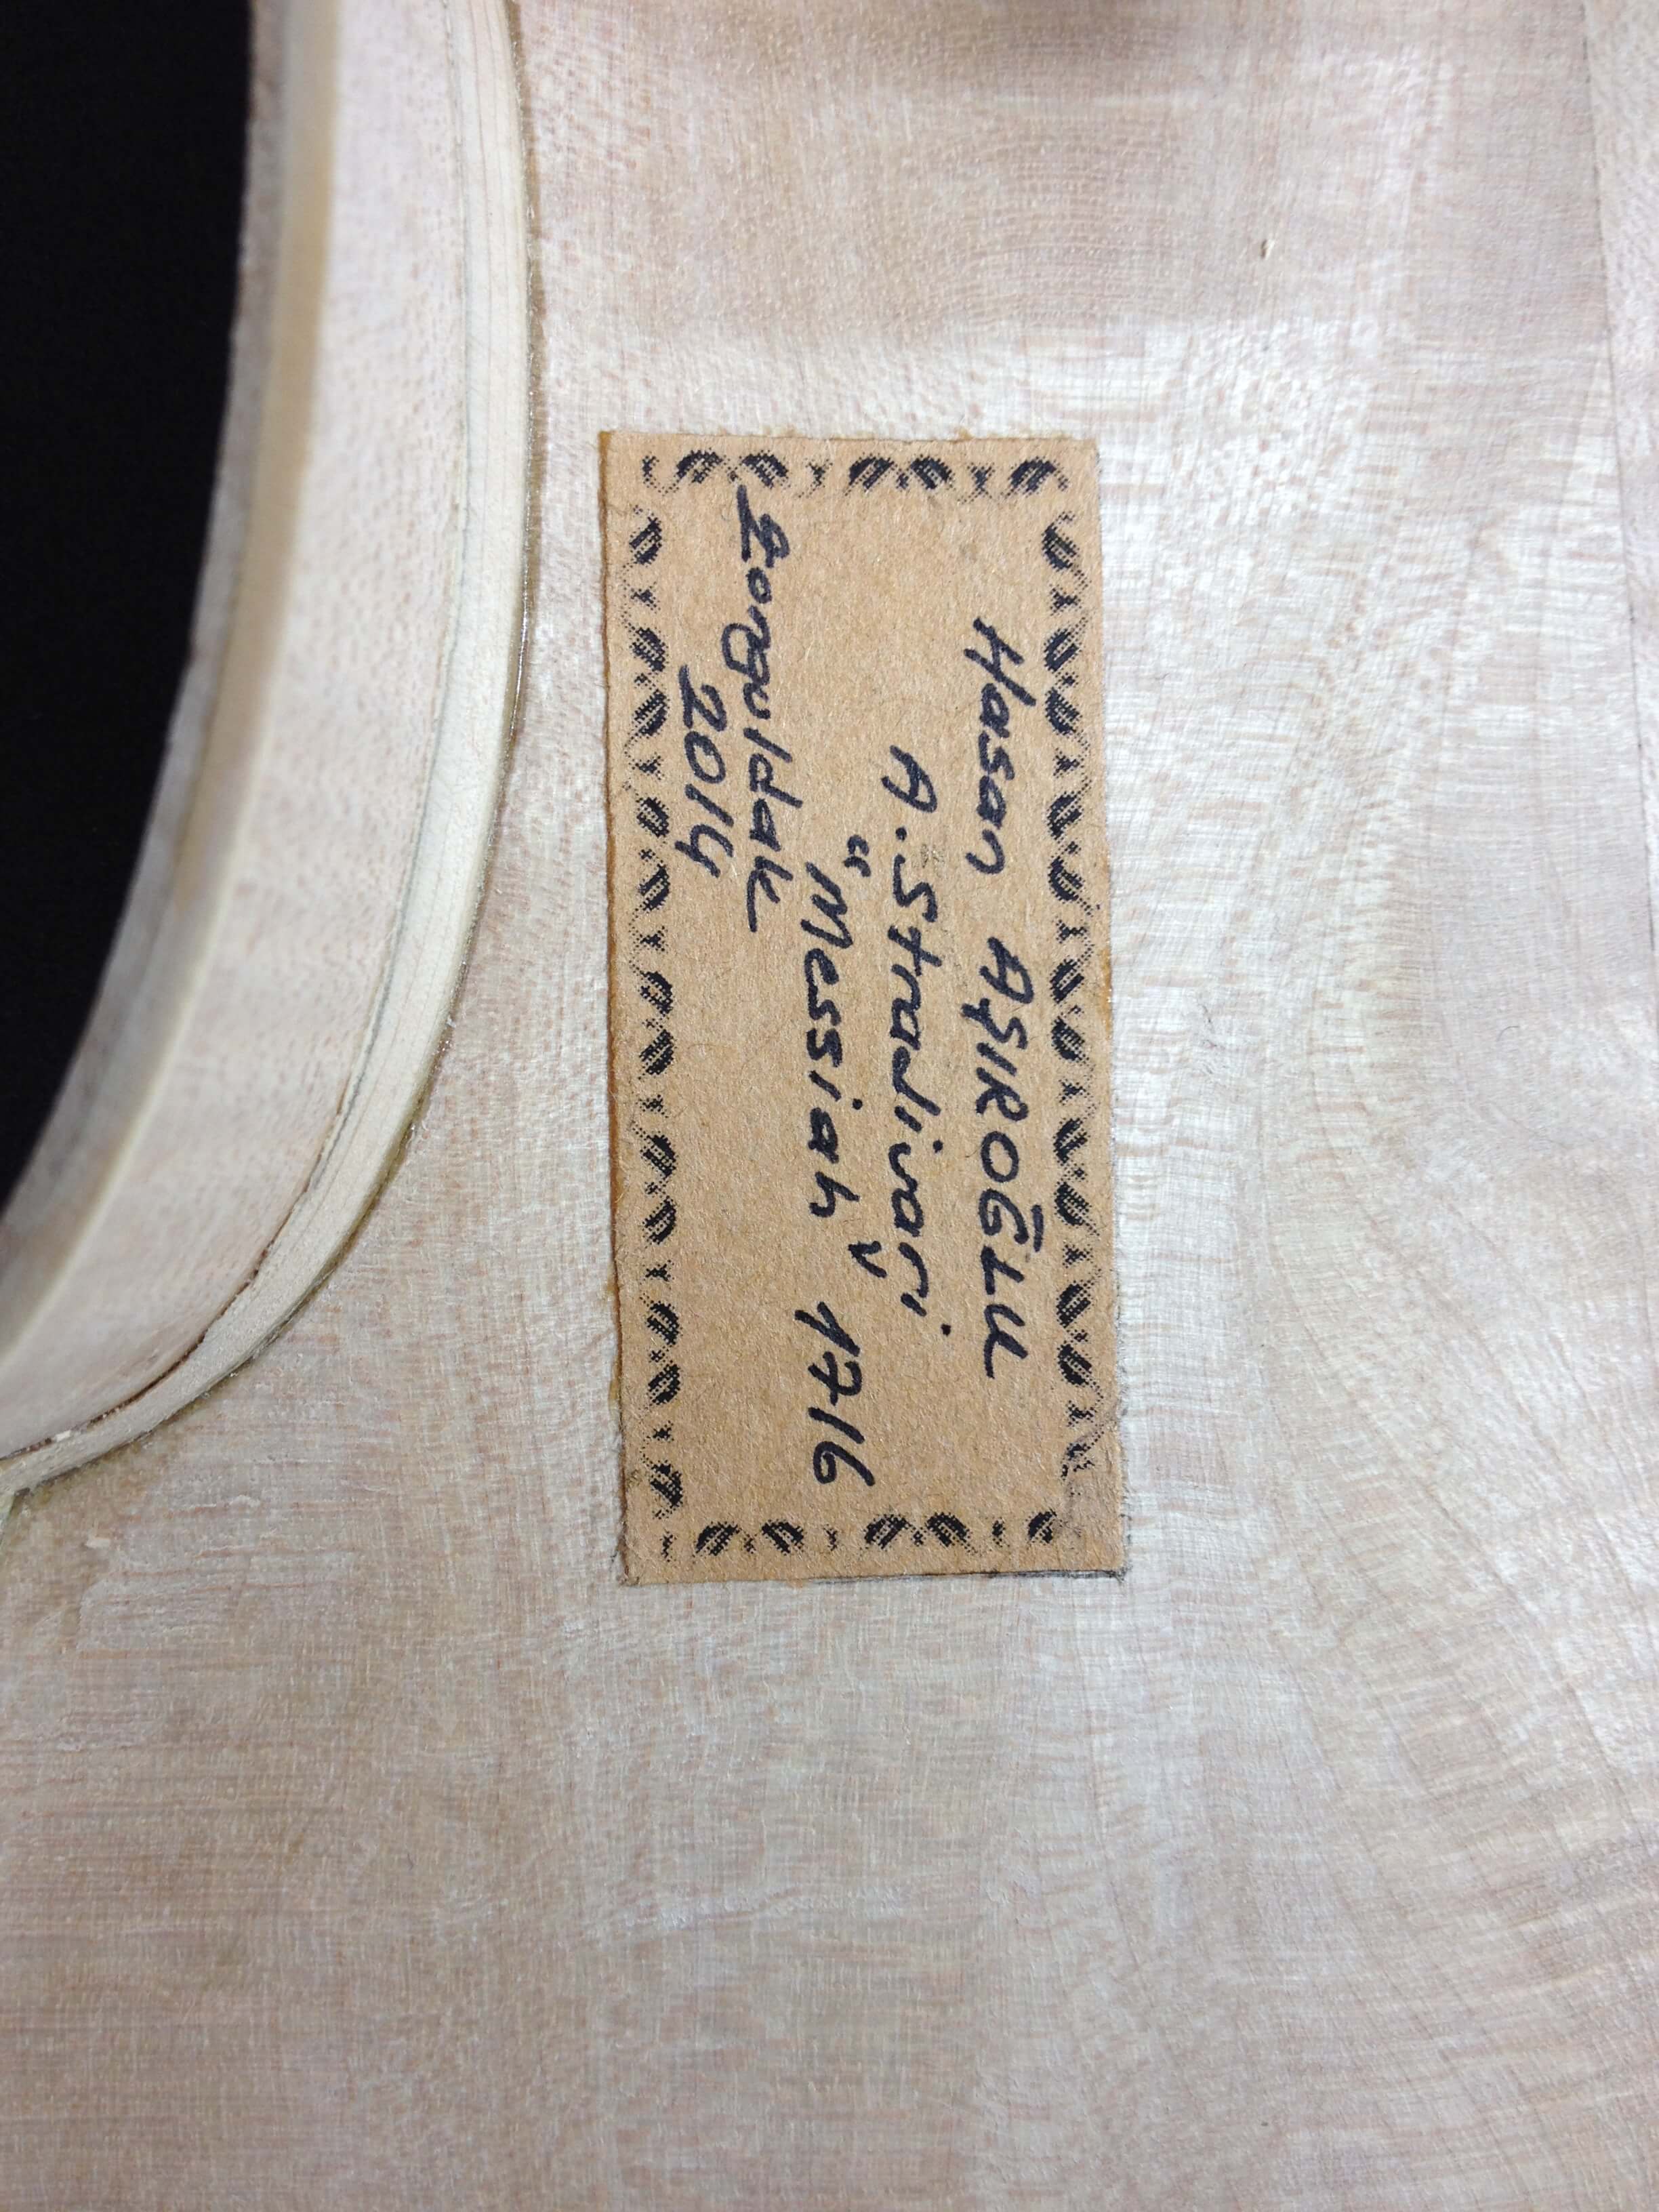 Hasan AŞIROĞLU
A. Stradivari
"Messiah" 1716
Zonguldak
2014